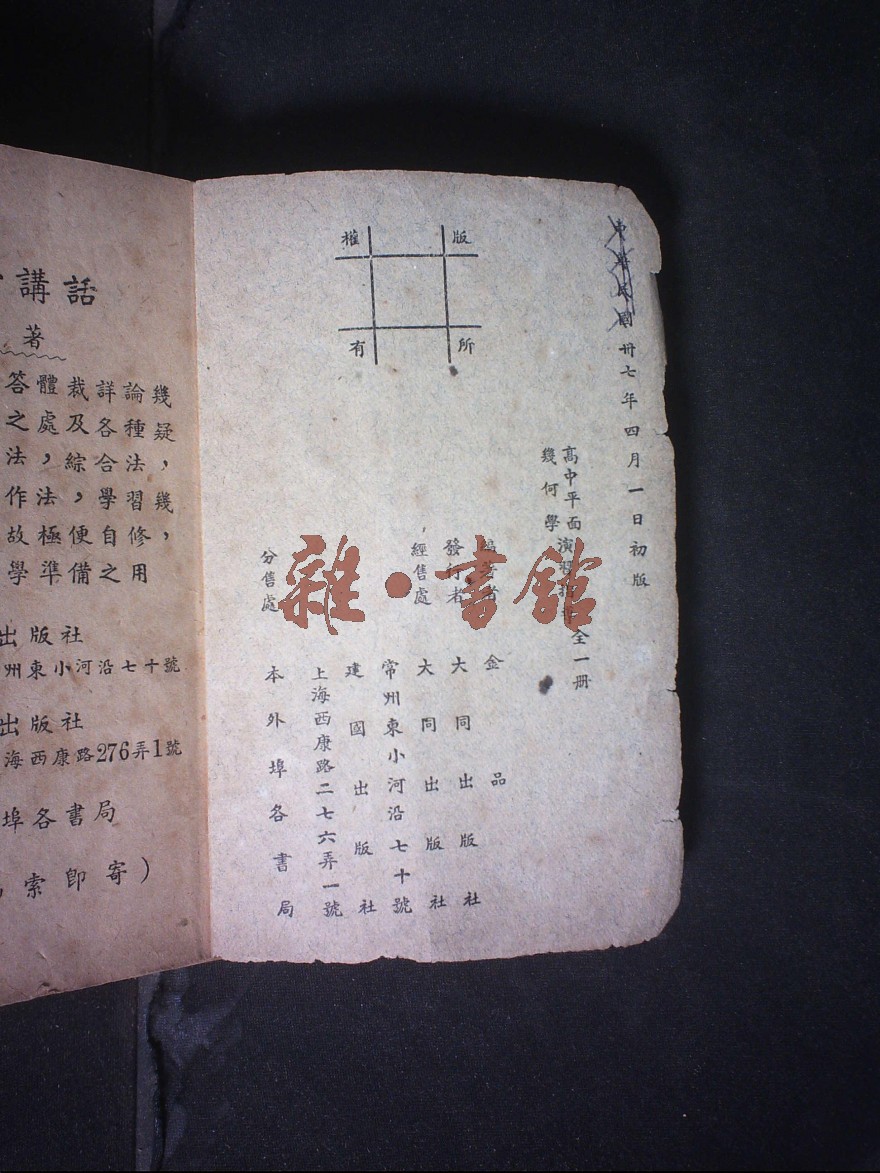 中華民國卅七年四月一日初版
高中平面
幾何學
演習指導 全一册
編著者 金品
發行者 大同出版社
經售處 大同出版社
常州東小河沿七十號
建國出版社
上海西康路二七六弄一號
分售處 本外埠各書局
版權所有
雜·書館
講話
著
幾疑，幾，
論種法習修用
詳各合學自之
裁及綜，便備
體處，法極準
答之法作故學
出版社
州東小河沿七十號
出版社
海西康路276弄1號
埠各書局
索即寄）